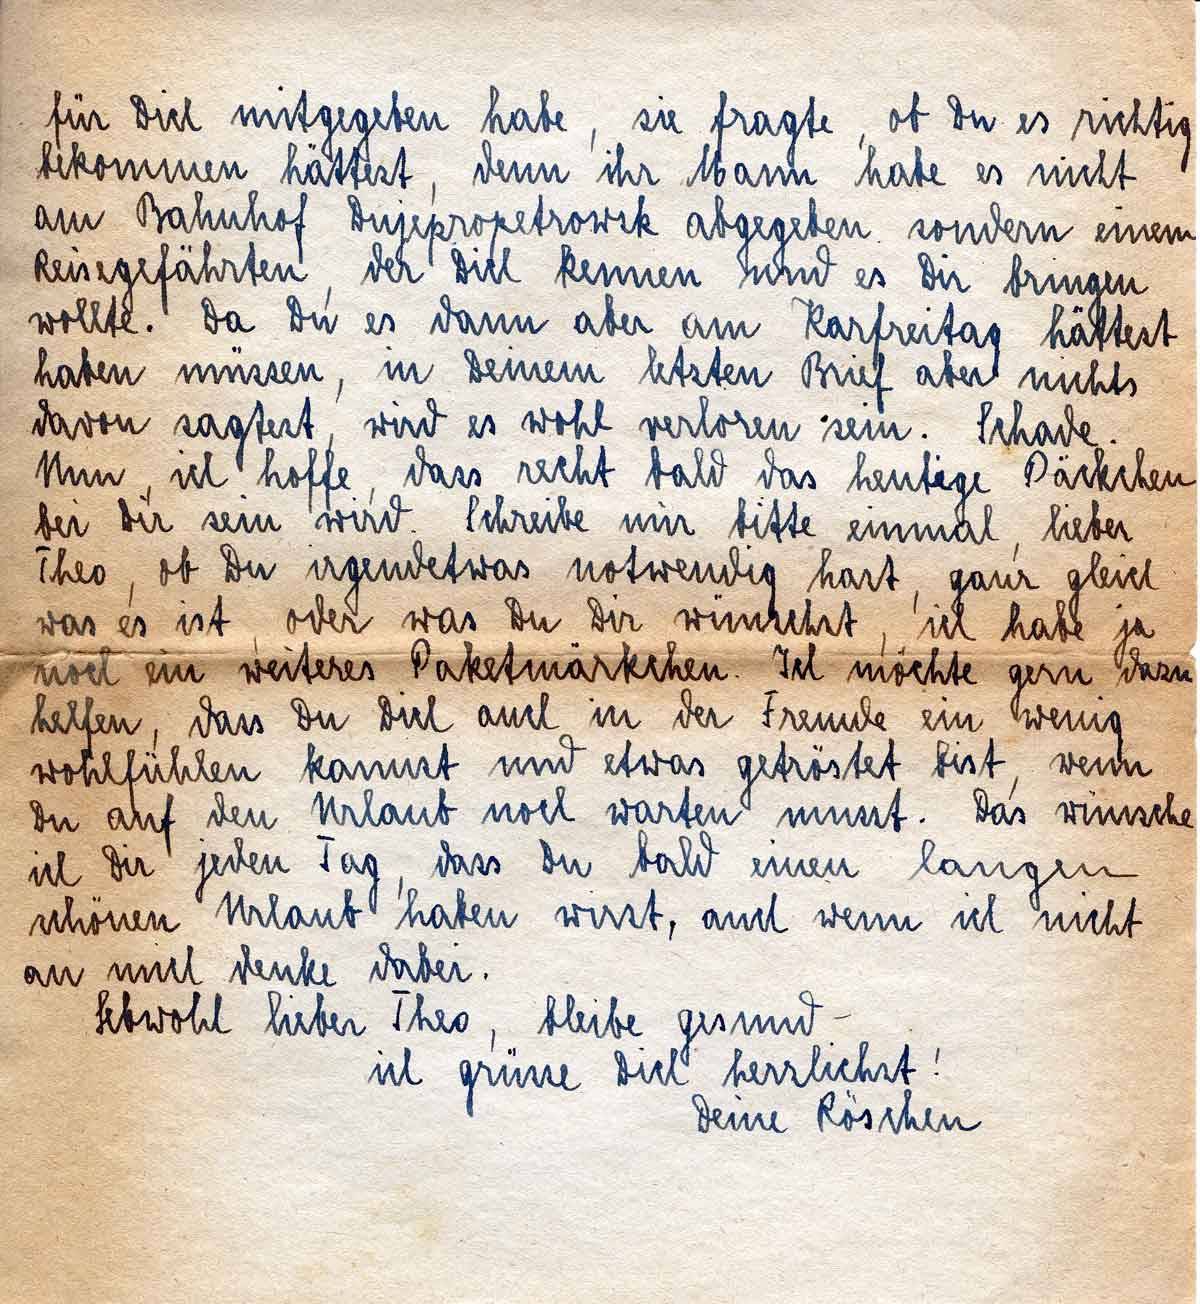 für Dich mitgegeben habe, sie fragte, ob Du es richtig
bekommen hättest, denn ihr Mann habe es nicht
am Bahnhof Dnjepropetrowsk abgegeben sondern einem
Reisegefährten, der Dich kennen und es Dir bringen
wollte. Da Du es dann aber am Karfreitag hättest
haben müssen, in Deinem letzten Brief aber nichts
davon sagtest, wird es wohl verloren sein. Schade.
Nun, ich hoffe, dass recht bald das heutige Päckchen
bei Dir sein wird. Schreibe mir bitte einmal, lieber
Theo, ob Du irgendetwas notwendig hast, ganz gleich
was es ist, oder was Du Dir wünschst, ich habe ja
noch ein weiteres Paketmärkchen. Ich möchte gern dazu
helfen, dass Du Dich auch in der Fremde ein wenig
wohlfühlen kannst und etwas getröstet bist, wenn
Du auf den Urlaub noch warten musst. Das wünsche
ich Dir jeden Tag, dass Du bald einen langen
schönen Urlaub haben wirst, auch wenn ich nicht
an mich denke dabei.
Lebwohl lieber Theo, bleibe gesund –
ich grüsse Dich herzlichst!
Deine Röschen